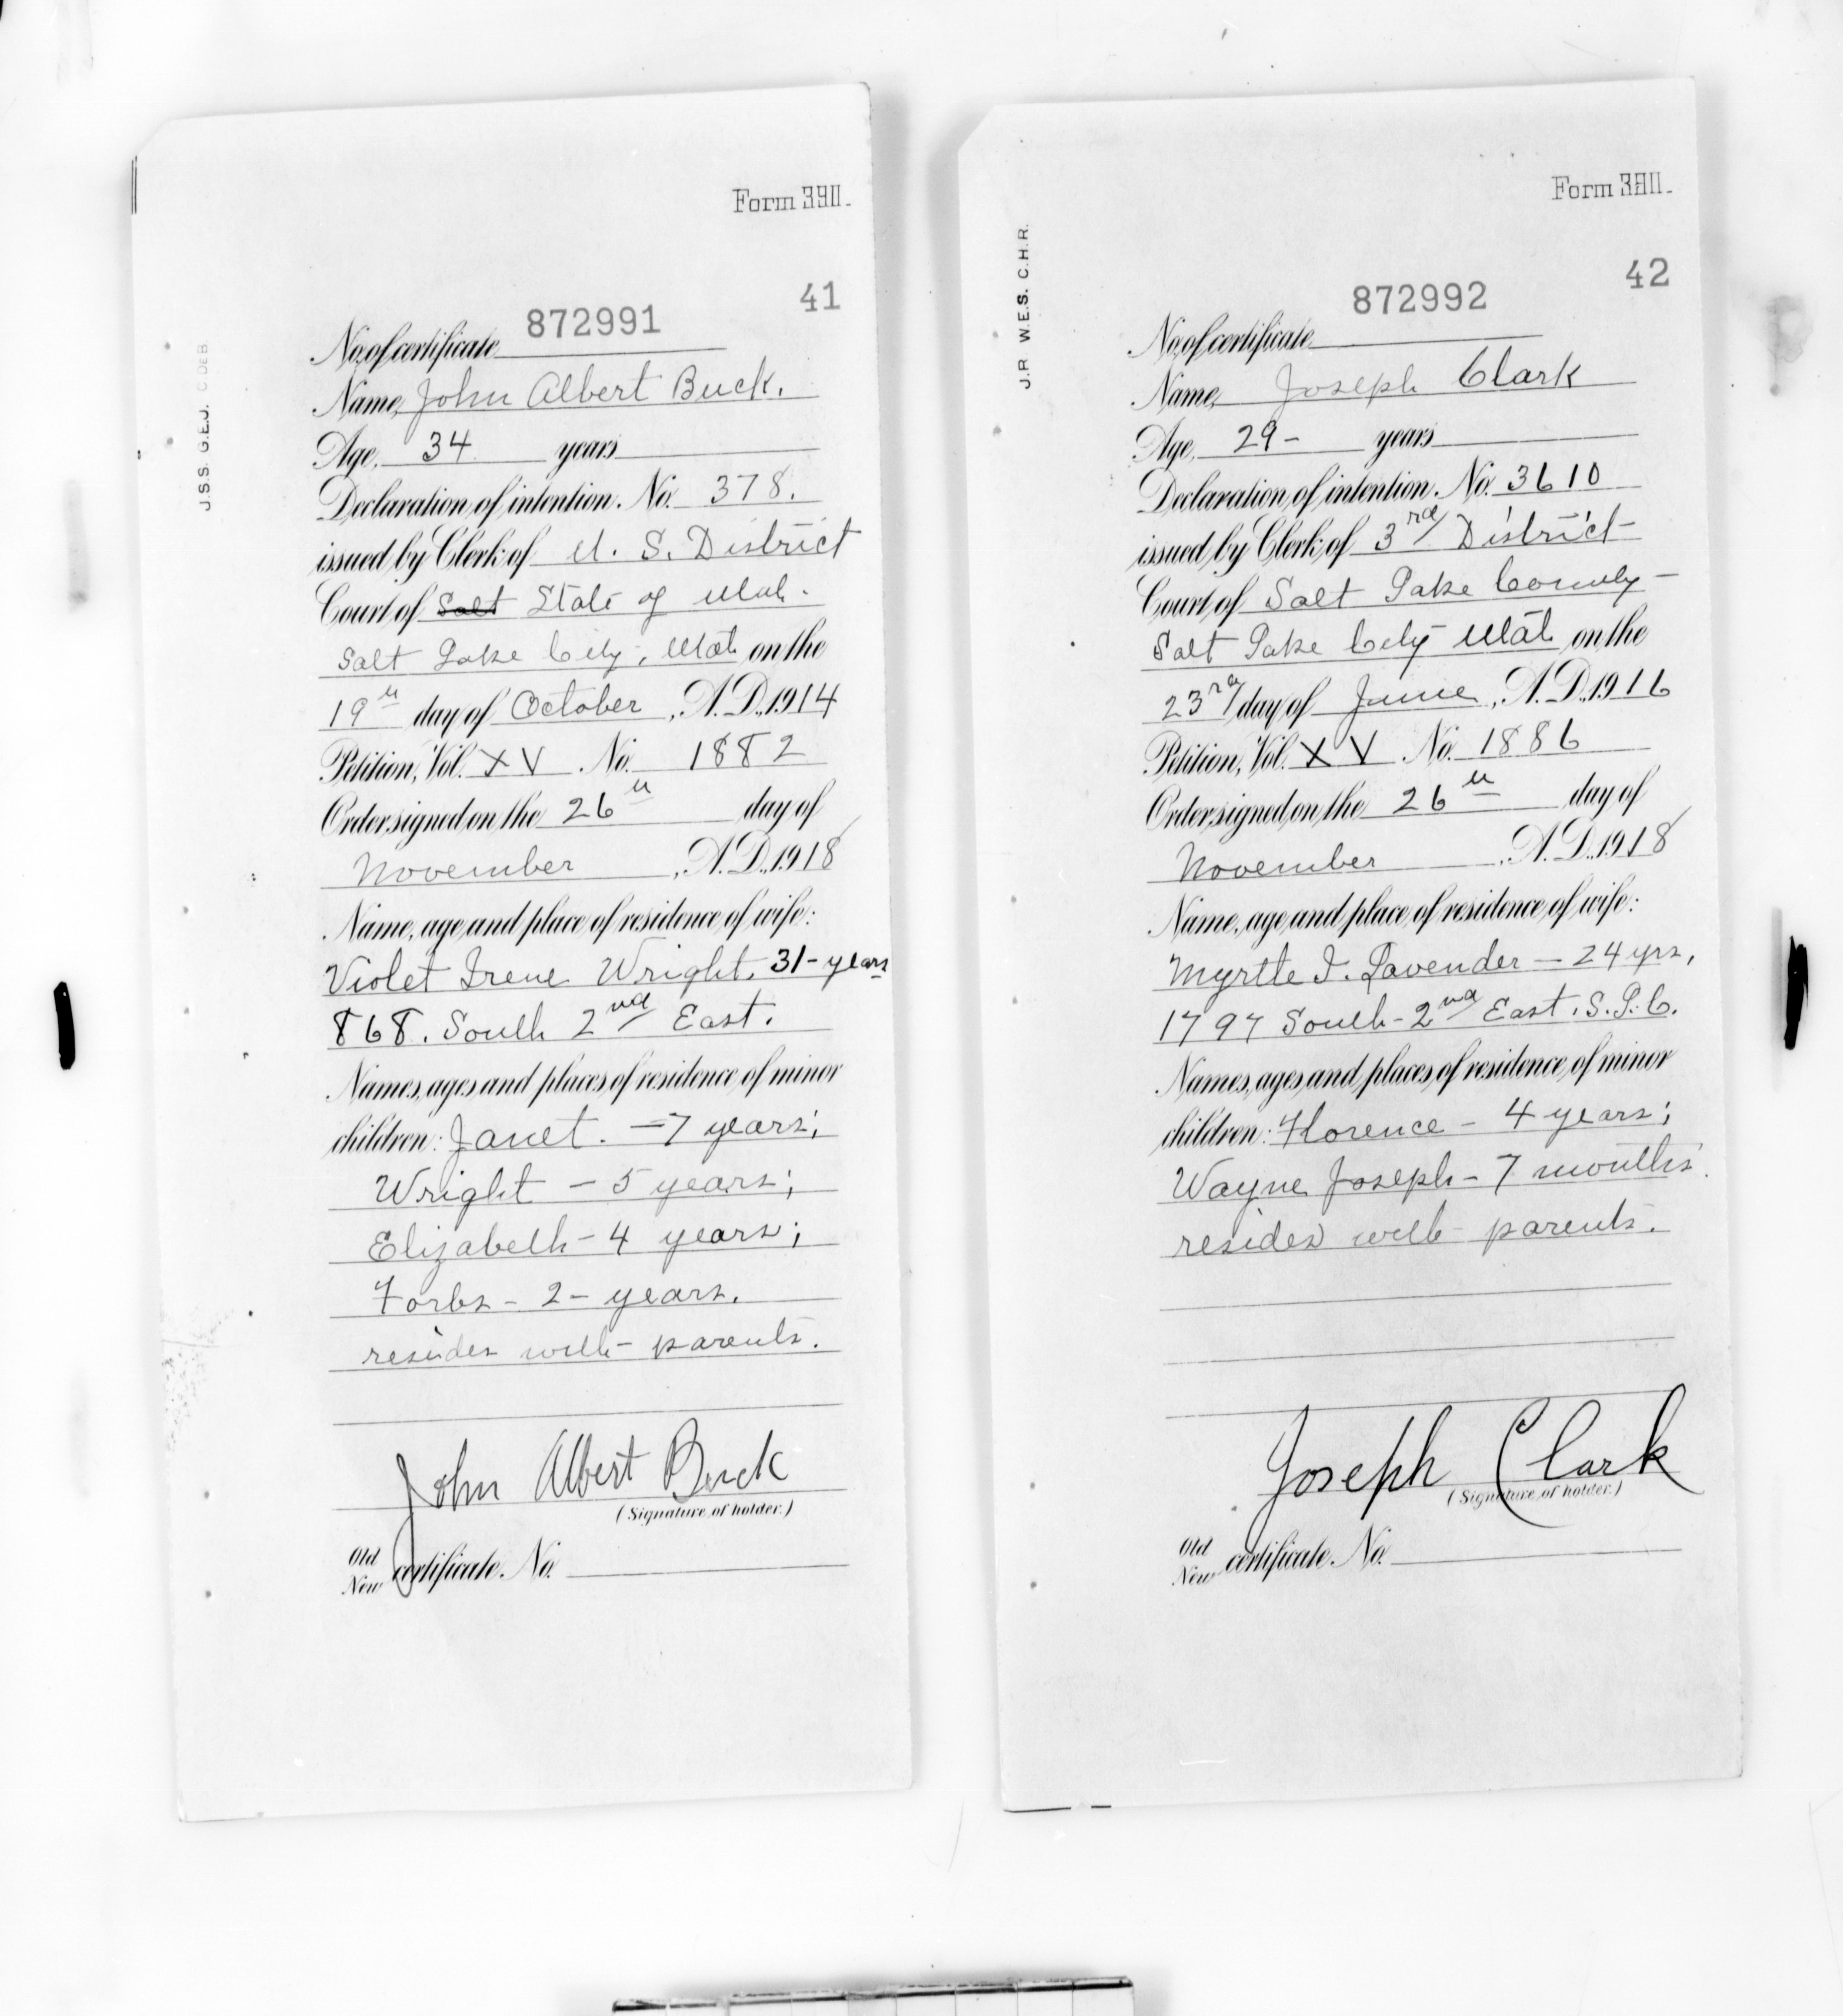 Form 390.
J.S.S. G.E.J. C DE B
41
872991
No. of certificate
Name, John Albert Buck.
Age, 34 years
Declaration of intention. No. 378.
issued by Clerk of U. S. District
Court of Salt State of Utah.
Salt Lake City, Utah on the
19th day of October, A.D., 1914
Petition, Vol. XV. No. 1882
Order signed on the 26th day of
November, A.D., 1918
Name, age and place of residence of wife:
Violet Irene Wright. 31-years
868. South 2nd East.
Names, ages and places of residence of minor
children: Janet. - 7 years;
Wright - 5 years;
Elizabeth - 4 years;
Forbs - 2 - years.
resides with parents.
John Albert Buck
(Signature of holder.)
Old
New certificate. No.
Form
J.R W.E.S. C.H.R.
42
872992
No. of certificate
Name, Joseph Clark
Age, 29 - years
Declaration of intention. No. 3610
issued by Clerk of 3rd District
Court of Salt Lake County -
Salt Lake City Utah on the
23rd day of June, A.D., 1916
Petition, Vol. XV. No. 1886
Order signed on the 26th day of
November, A.D., 1918
Name, age and place of residence of wife:
Myrtle I. Lavender - 24 yrs,
1797 South - 2nd East. S.L.C.
Names, ages and places of residence of minor
children: Florence - 4 years;
Wayne Joseph - 7 months.
resides with parents.
Joseph Clark
(Signature of holder.)
Old
New certificate. No.